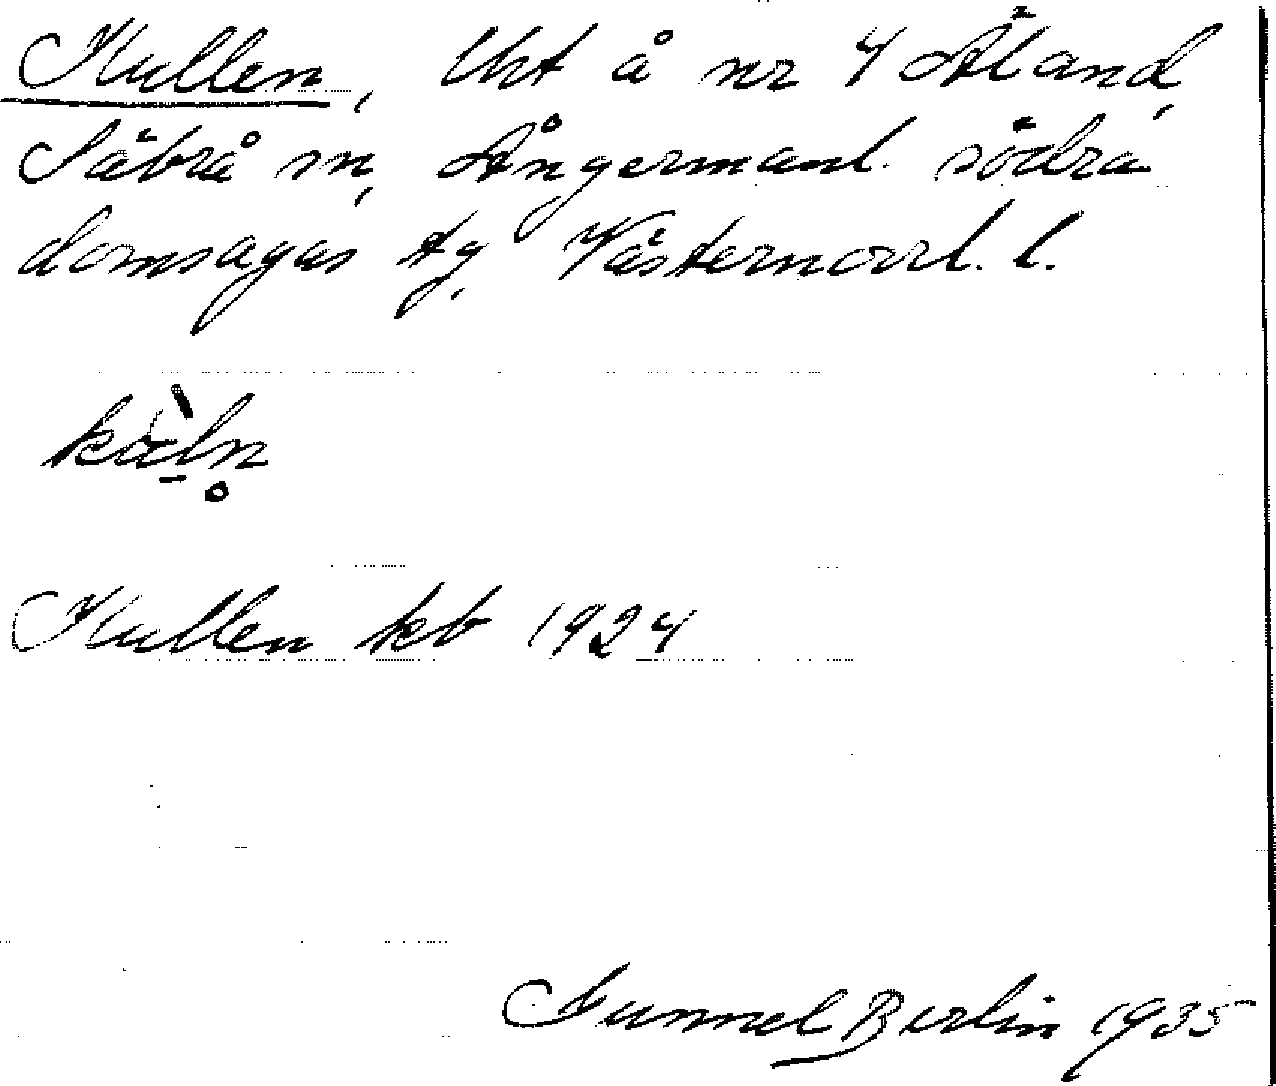 Kullen, lht å nr 4 Äland,
Säbrå sn, Ångermanl. södra
domsagas tg, Västernorrl. l.
Kullen kb 1924
Gunnel Berlin 1935